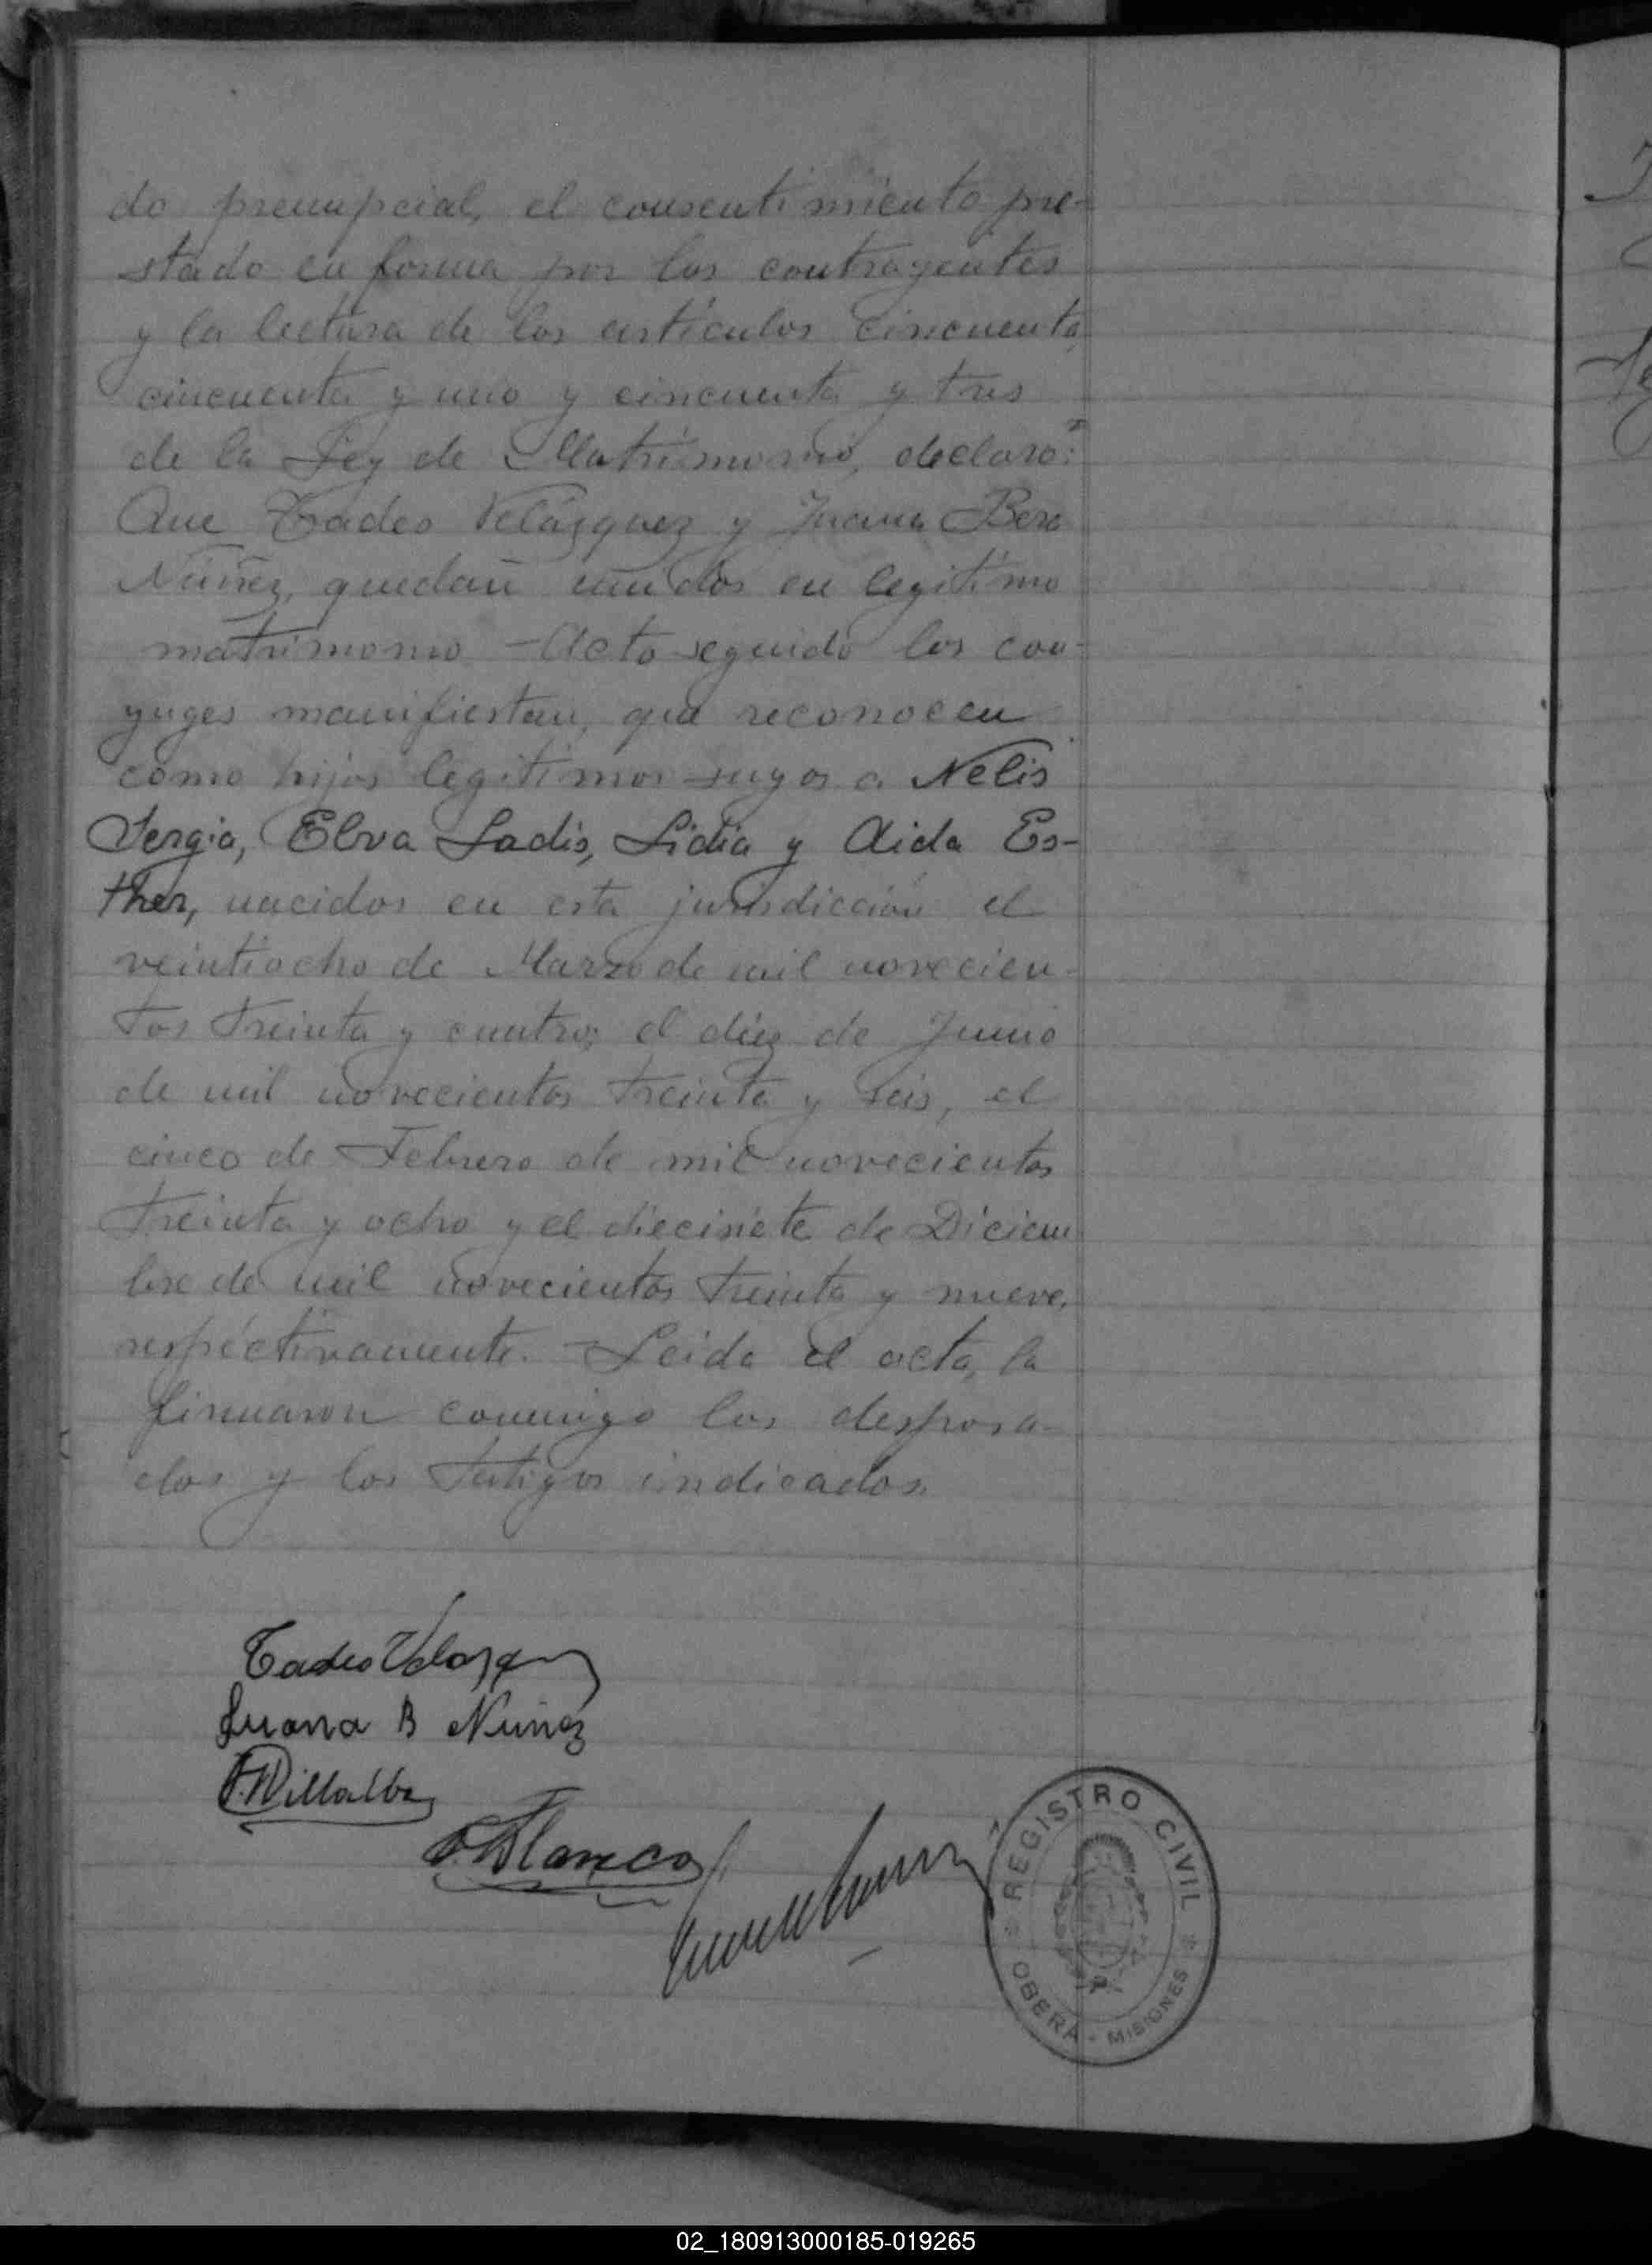 do prenupcial, el consentimiento pre-
stado en forma por los contragentes
y la lectura de los artículos cincuenta,
cincuenta y uno y cincuenta y tres
de la Ley de Matrimonio, declaro:
Que Tadeo Velázquez y Juana Bera
Núñez, quedan unidos en legitimo
matrimonio - Acto seguido los con-
yuges manifiestan, que reconocen
como hijos legitimos suyos a Nelis
Sergia, Elva Ladis, Lidia y Aida Es-
ther, nacidos en esta jurisdicción el
veintiocho de Marzo de mil novecien-
tos treinta y cuatro; el diez de Junio
de mil novecientos treinta y seis, el
cinco de Febrero de mil novecientos
treinta y ocho y el diecisiete de Diciem
bre de mil novecientos treinta y nueve,
respectivamente. - Leida el acta, la
firmaron conmigo los desposa-
dos y los testigos indicados.
Tadeo Velazquez
Juana B Nuñez
Villalba
Blanco
REGISTRO CIVIL
OBERÁ - MISIONES
02_180913000185-019265